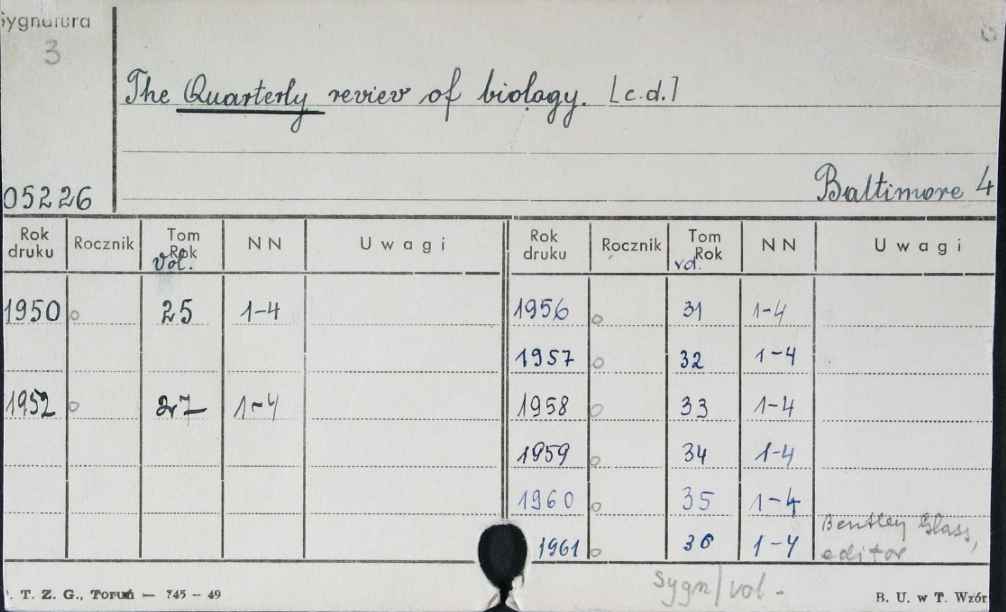 Sygnatura
3
The Quarterly review of biology. [c.d.]
05226
Baltimore 4
Rok druku Rocznik Tom Rok vol. NN Uwagi Rok druku Rocznik Tom Rok vol. NN Uwagi
1950 25 1-4 1956 31 1-4
1957 32 1-4
1952 27 1-4 1958 33 1-4
1959 34 1-4
1960 35 1-4
1961 36 1-4 Bentley Glass, editor
Sygn/vol.
T. Z. G., Toruń — 745 — 49 B. U. w T. Wzór